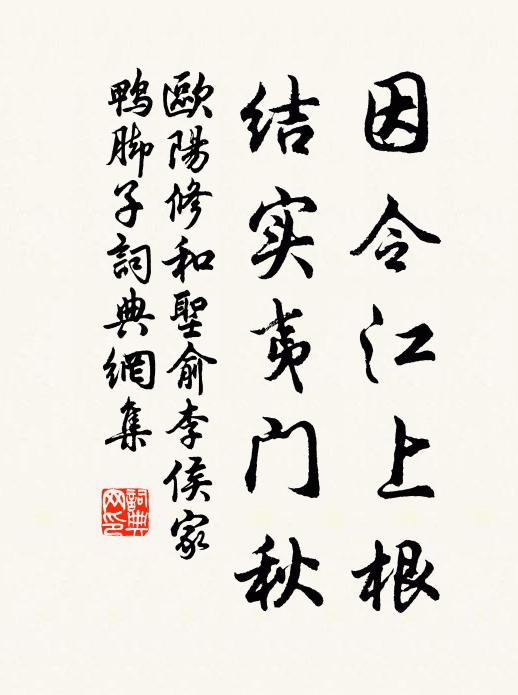 因令江上根
结实夷门秋
歐陽修和聖俞李侯家
鴨脚子詞典網集
詞典
网印